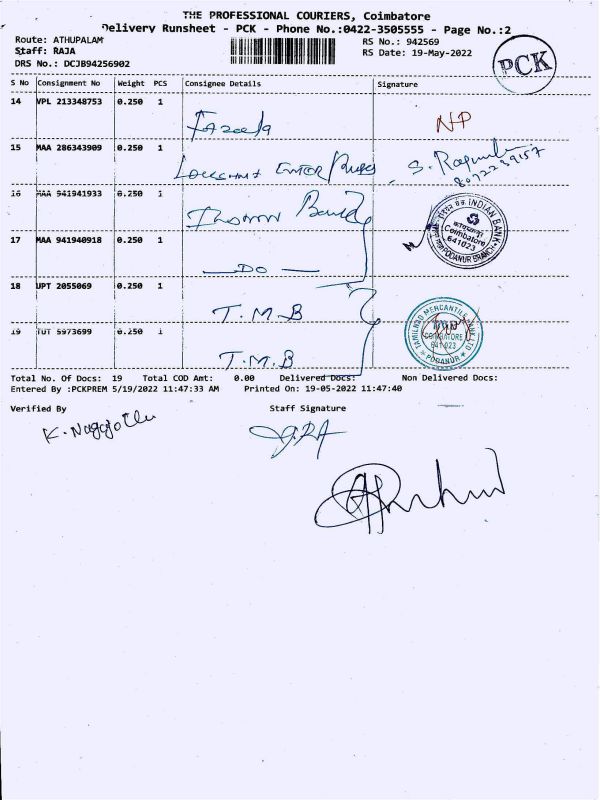 THE PROFESSIONAL COURIERS, Coimbatore
Delivery Runsheet - PCK - Phone No.:0422-3505555 - Page No.:2
Route: ATHUPALAM
Staff: RAJA
DRS No.: DCJB94256902
RS No.: 942569
RS Date: 19-May-2022
PCK
S No Consignment No Weight PCS Consignee Details Signature
14 VPL 213348753 0.250 1 Fazeela NP
15 MAA 286343909 0.250 1 S.
8072239157
16 MAA 941941933 0.250 1
INDIAN BANK
Coimbatore
641023
PODANUR BRANCH
17 MAA 941940918 0.250 1 DO
18 UPT 2055069 0.250 1 T.M.B
TAMILNAD MERCANTILE BANK LTD
COIMBATORE
641 023
PODANUR
19 TUT 5973699 0.250 1 T.M.B
Total No. Of Docs: 19 Total COD Amt: 0.00 Delivered Docs: Non Delivered Docs:
Entered By :PCKPREM 5/19/2022 11:47:33 AM Printed On: 19-05-2022 11:47:40
Verified By Staff Signature